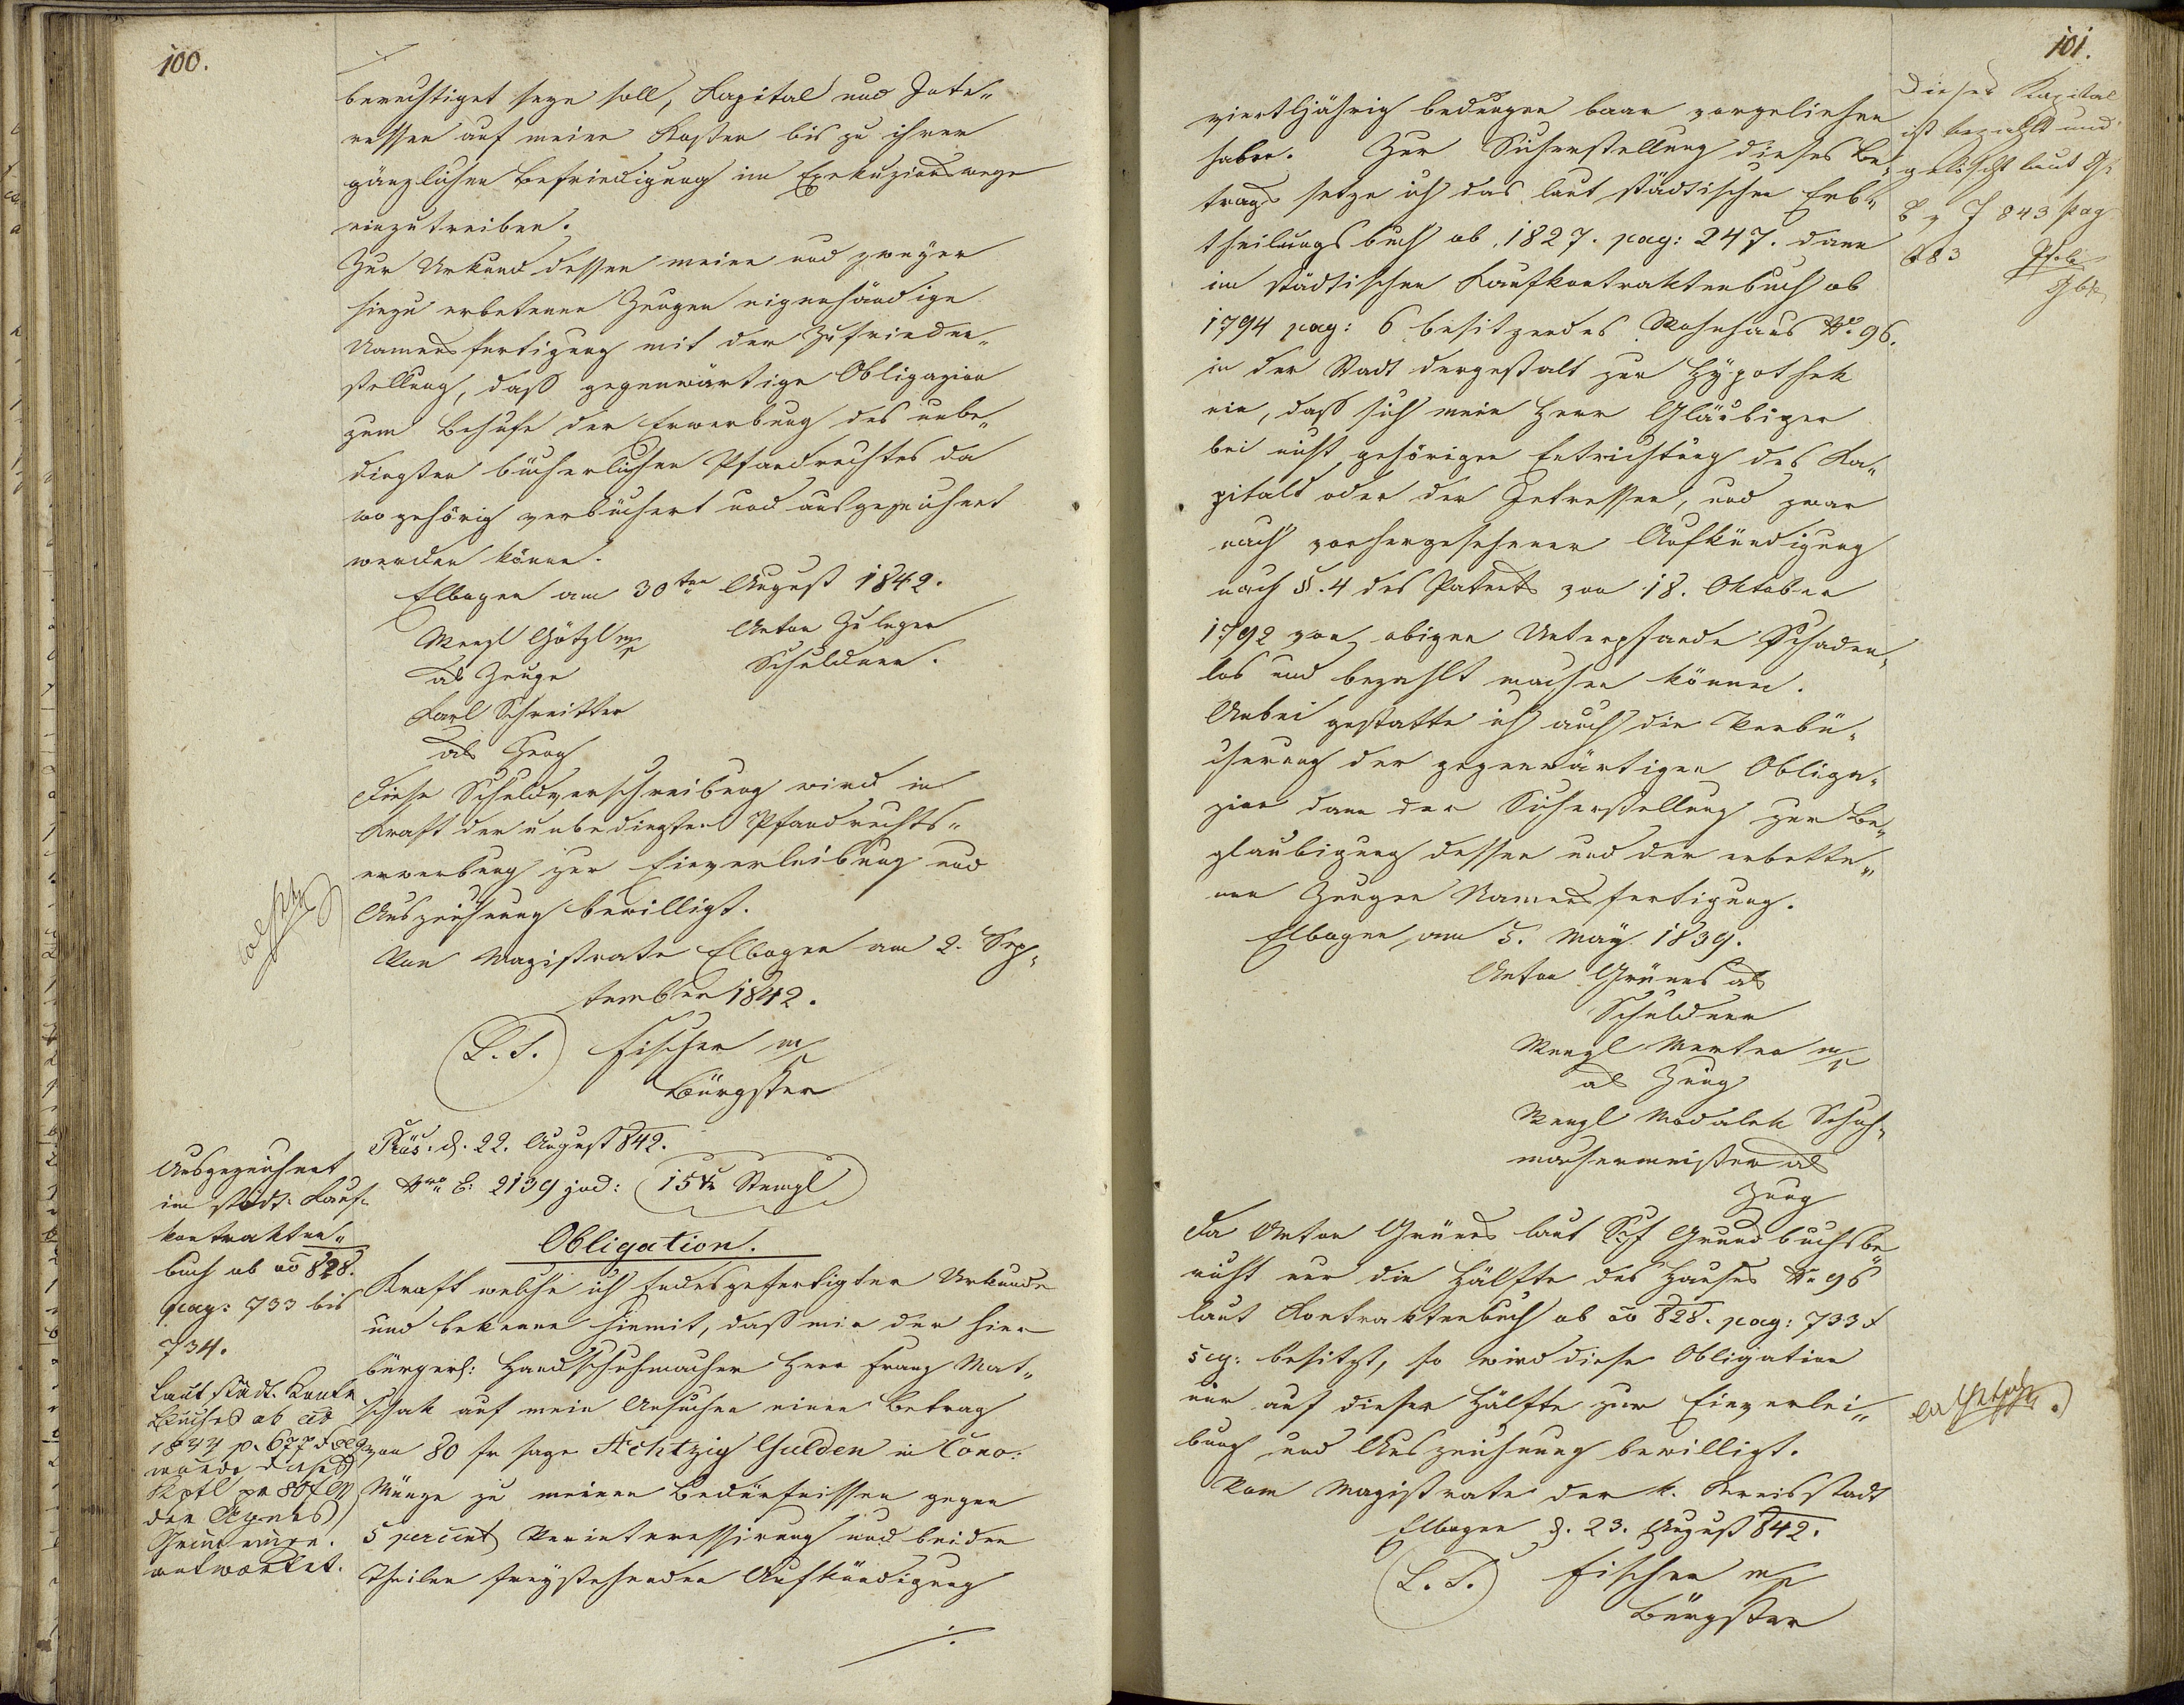 100.
berechtiget seyn soll, Kapital und Inte„
ressen auf meine Kosten bis zu ihrer
gänzlichen Befriedigung im Exekuzionswege
einzutreiben.
Zur Urkund dessen meine und zweyer
hiezu erbetenen Zeugen eigenhändige
Namensfertigung mit der Zufrieden„
stellung, daß gegenwärtige Obligazion
zum Behufe der Erwerbung des unbe„
dingten bücherlichen Pfandrechtes da
wo gehörig verbüchert und ausgezeichnet
werden könne.
Elbogen am 30ten August 1842.
Wenzl Götzl m/p Anton Zuleger
als Zeuge Schuldner.
Karl Schreitter
als Zeug
Diese Schuldverschreibung wird in
Kraft der unbedingten Pfandrechts„
erwerbung zur Einverleibung und
Auszeichnung bewilligt.
Vom Magistrate Elbogen am 2. Sep„
tember 1842.
(L. S.) Fischer m/p
Bürgster
Präs. d. 22. August 842.
Nro E: 2139 jud: 15 kr Stempl
Ausgezeichnet
im städt. Kauf„
kontrakten„
buch ab ao 828.
pag: 733 bis
734.
Obligation.
Kraft welcher ich Endesgefertigter Urkunde
und bekenne hiemit, daß mir der hier
bürgerl: Handschuhmacher Herr Franz Mat„
schak auf mein Ansuchen einen Betrag
von 80 fr sage Achtzig Gulden in Conv:
Münze zu meinen Bedürfnissen gegen
5 percent Verinteressirung und beiden
Theilen freystehender Aufkündigung
./.
Laut städt. Kontr
Buches ab ao
1844 p. 677
wurde dieses
Kptl pr 80 f CM
der Agnes
Grünes einge„
antwortet.
101.
viertljährig bedungen baar vorgeliehen
haben. Zur Sicherstellung dieses Be„
trags setze ich das laut städtischen Erb„
theilungsbuch ab 1827. pag: 247. dann
im städtischen Kaufkontraktenbuch ab
1794 pag: 6 besitzendes Wohnhaus No. 96.
in der Stadt dergestalt zur Hypothek
ein, daß sich mein Herr Gläubiger
bei nicht gehöriger Entrichtung des Ka„
pitals oder der Intressen, und zwar
nach vorhergesehener Aufkündigung
nach §. 4 des Patents von 18. Oktober
1792 von obigen Unterpfande Schaden„
los und bezahlt machen könne.
Anbei gestatte ich auch die Verbü„
cherung der gegenwärtigen Obliga„
zion dann der Sicherstellung zur Be„
glaubigung dessen und der erbette„
nen Zeugen Namensfertigung.
Elbogen, am 5. May 1839.
Anton Grünes als
Schuldner
Wenzl Merten m/p
als Zeug
Wenzl Modalek Schuh„
machermeister als
Zeug
Da Anton Grünes laut Grundbuchsbe„
richt nur die Hälfte des Hauses No 96
laut Kontraktenbuch ab ao 828. pag: 733 &
seq: besitzt, so wird diese Obligation
nur auf dieser Hälfte zur Einverlei„
bung und Auszeichnung bewilligt.
Vom Magistrate der k. Kreisstadt
Elbogen d. 23. August 842.
(L. S.) Fischer m/p
Bürgster
Dieses Kapital
ist bezahlt und
gelöscht laut
843 pag